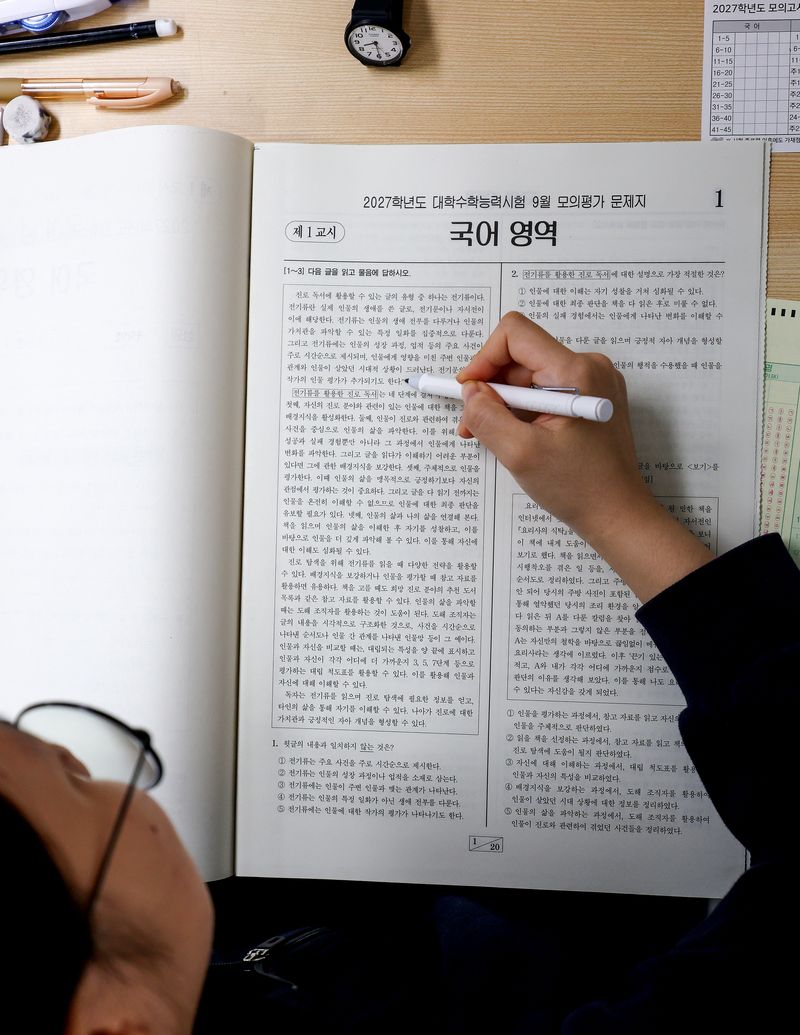 2027학년도 모의고사
국 어
1~5
6~10
11~15
16~20
21~25
26~30
31~35
36~40
41~45
2027학년도 대학수학능력시험 9월 모의평가 문제지
1
제 1 교시
국어 영역
[1~3] 다음 글을 읽고 물음에 답하시오.
진로 독서에 활용할 수 있는 글의 유형 중 하나는 전기류이다.
전기류란 실제 인물의 생애를 쓴 글로, 전기문이나 자서전이
이에 해당한다. 전기류는 인물의 생애 전부를 다루거나 인물의
가치관을 파악할 수 있는 특정 일화를 집중적으로 다룬다.
그리고 전기류에는 인물의 성장 과정, 업적 등의 주요 사건이
주로 시간순으로 제시되며, 인물에게 영향을 미친 주변 인물과의
관계와 인물이 살았던 시대적 상황이 드러난다. 전기문의
작가의 인물 평가가 추가되기도 한다.
전기류를 활용한 진로 독서는 네 단계에 걸쳐
첫째, 자신의 진로 분야와 관련이 있는 인물에 대한 책을
배경지식을 활성화한다. 둘째, 인물이 진로와 관련하여 겪은
사건을 중심으로 인물의 삶을 파악한다. 이를 위해
성공과 실패 경험뿐만 아니라 그 과정에서 인물에게 나타난
변화를 파악한다. 그리고 글을 읽다가 이해하기 어려운 부분이
있다면 그에 관한 배경지식을 보강한다. 셋째, 주체적으로 인물을
평가한다. 이때 인물의 삶을 맹목적으로 긍정하기보다 자신의
관점에서 평가하는 것이 중요하다. 그리고 글을 다 읽기 전까지는
인물을 온전히 이해할 수 없으므로 인물에 대한 최종 판단을
유보할 필요가 있다. 넷째, 인물의 삶과 나의 삶을 연결해 본다.
책을 읽으며 인물의 삶을 이해한 후 자기를 성찰하고, 이를
바탕으로 인물을 더 깊게 파악해 볼 수 있다. 이를 통해 자신에
대한 이해도 심화될 수 있다.
진로 탐색을 위해 전기류를 읽을 때 다양한 전략을 활용할
수 있다. 배경지식을 보강하거나 인물을 평가할 때 참고 자료를
활용하면 유용하다. 책을 고를 때도 희망 진로 분야의 추천 도서
목록과 같은 참고 자료를 활용할 수 있다. 인물의 삶을 파악할
때는 도해 조직자를 활용하는 것이 도움이 된다. 도해 조직자는
글의 내용을 시각적으로 구조화한 것으로, 사건을 시간순으로
나타낸 순서도나 인물 간 관계를 나타낸 인물망 등이 그 예이다.
인물과 자신을 비교할 때는, 대립되는 특성을 양 끝에 표시하고
인물과 자신이 각각 어디에 더 가까운지 3, 5, 7단계 등으로
평가하는 대립 척도표를 활용할 수 있다. 이를 활용해 인물과
자신에 대해 이해할 수 있다.
독자는 전기류를 읽으며 진로 탐색에 필요한 정보를 얻고,
타인의 삶을 통해 자기를 이해할 수 있다. 나아가 진로에 대한
가치관과 긍정적인 자아 개념을 형성할 수 있다.
1. 윗글의 내용과 일치하지 않는 것은?
① 전기류는 주요 사건을 주로 시간순으로 제시한다.
② 전기류는 인물의 성장 과정이나 업적을 소재로 삼는다.
③ 전기류에는 인물이 주변 인물과 맺는 관계가 나타난다.
④ 전기류는 인물의 특정 일화가 아닌 생애 전부를 다룬다.
⑤ 전기류에는 인물에 대한 작가의 평가가 나타나기도 한다.
2. 전기류를 활용한 진로 독서에 대한 설명으로 가장 적절한 것은?
① 인물에 대한 이해는 자기 성찰을 거쳐 심화될 수 있다.
② 인물에 대한 최종 판단을 책을 다 읽은 후로 미룰 수 없다.
인물의 실패 경험에서는 인물에게 나타난 변화를 이해할 수
인물을 다룬 글을 읽으며 긍정적 자아 개념을 형성할
인물의 행적을 수용했을 때 인물을
글을 바탕으로 <보기>를
인터넷에서
자서전인
『요리사의 식탁』을
이 책에 내게 도움이
보기로 했다. 책을 읽으면서
시행착오를 겪은 일 등을,
순서도로 정리하였다. 그리고 주방
안 되어 당시의 주방 사진이 포함된
통해 열악했던 당시의 조리 환경을
다 읽은 뒤 A를 다룬 칼럼을 찾아
동의하는 부분과 그렇지 않은 부분을
A는 자신만의 철학을 바탕으로 끊임없이
요리사라는 생각에 이르렀다. 이후 '끈기 있는
적고, A와 내가 각각 어디에 가까운지 점수로
판단의 이유를 생각해 보았다. 이를 통해 나도
수 있다는 자신감을 갖게 되었다.
① 인물을 평가하는 과정에서, 참고 자료를 읽고 자신의
인물을 주체적으로 판단하였다.
② 읽을 책을 선정하는 과정에서, 참고 자료를 읽고
진로 탐색에 도움이 될지 판단하였다.
③ 자신에 대해 이해하는 과정에서, 대립 척도표를 활용하여
인물과 자신의 특성을 비교하였다.
④ 배경지식을 보강하는 과정에서, 도해 조직자를 활용하여
인물이 살았던 시대 상황에 대한 정보를 정리하였다.
⑤ 인물의 삶을 파악하는 과정에서, 도해 조직자를 활용하여
인물이 진로와 관련하여 겪었던 사건들을 정리하였다.
1
20